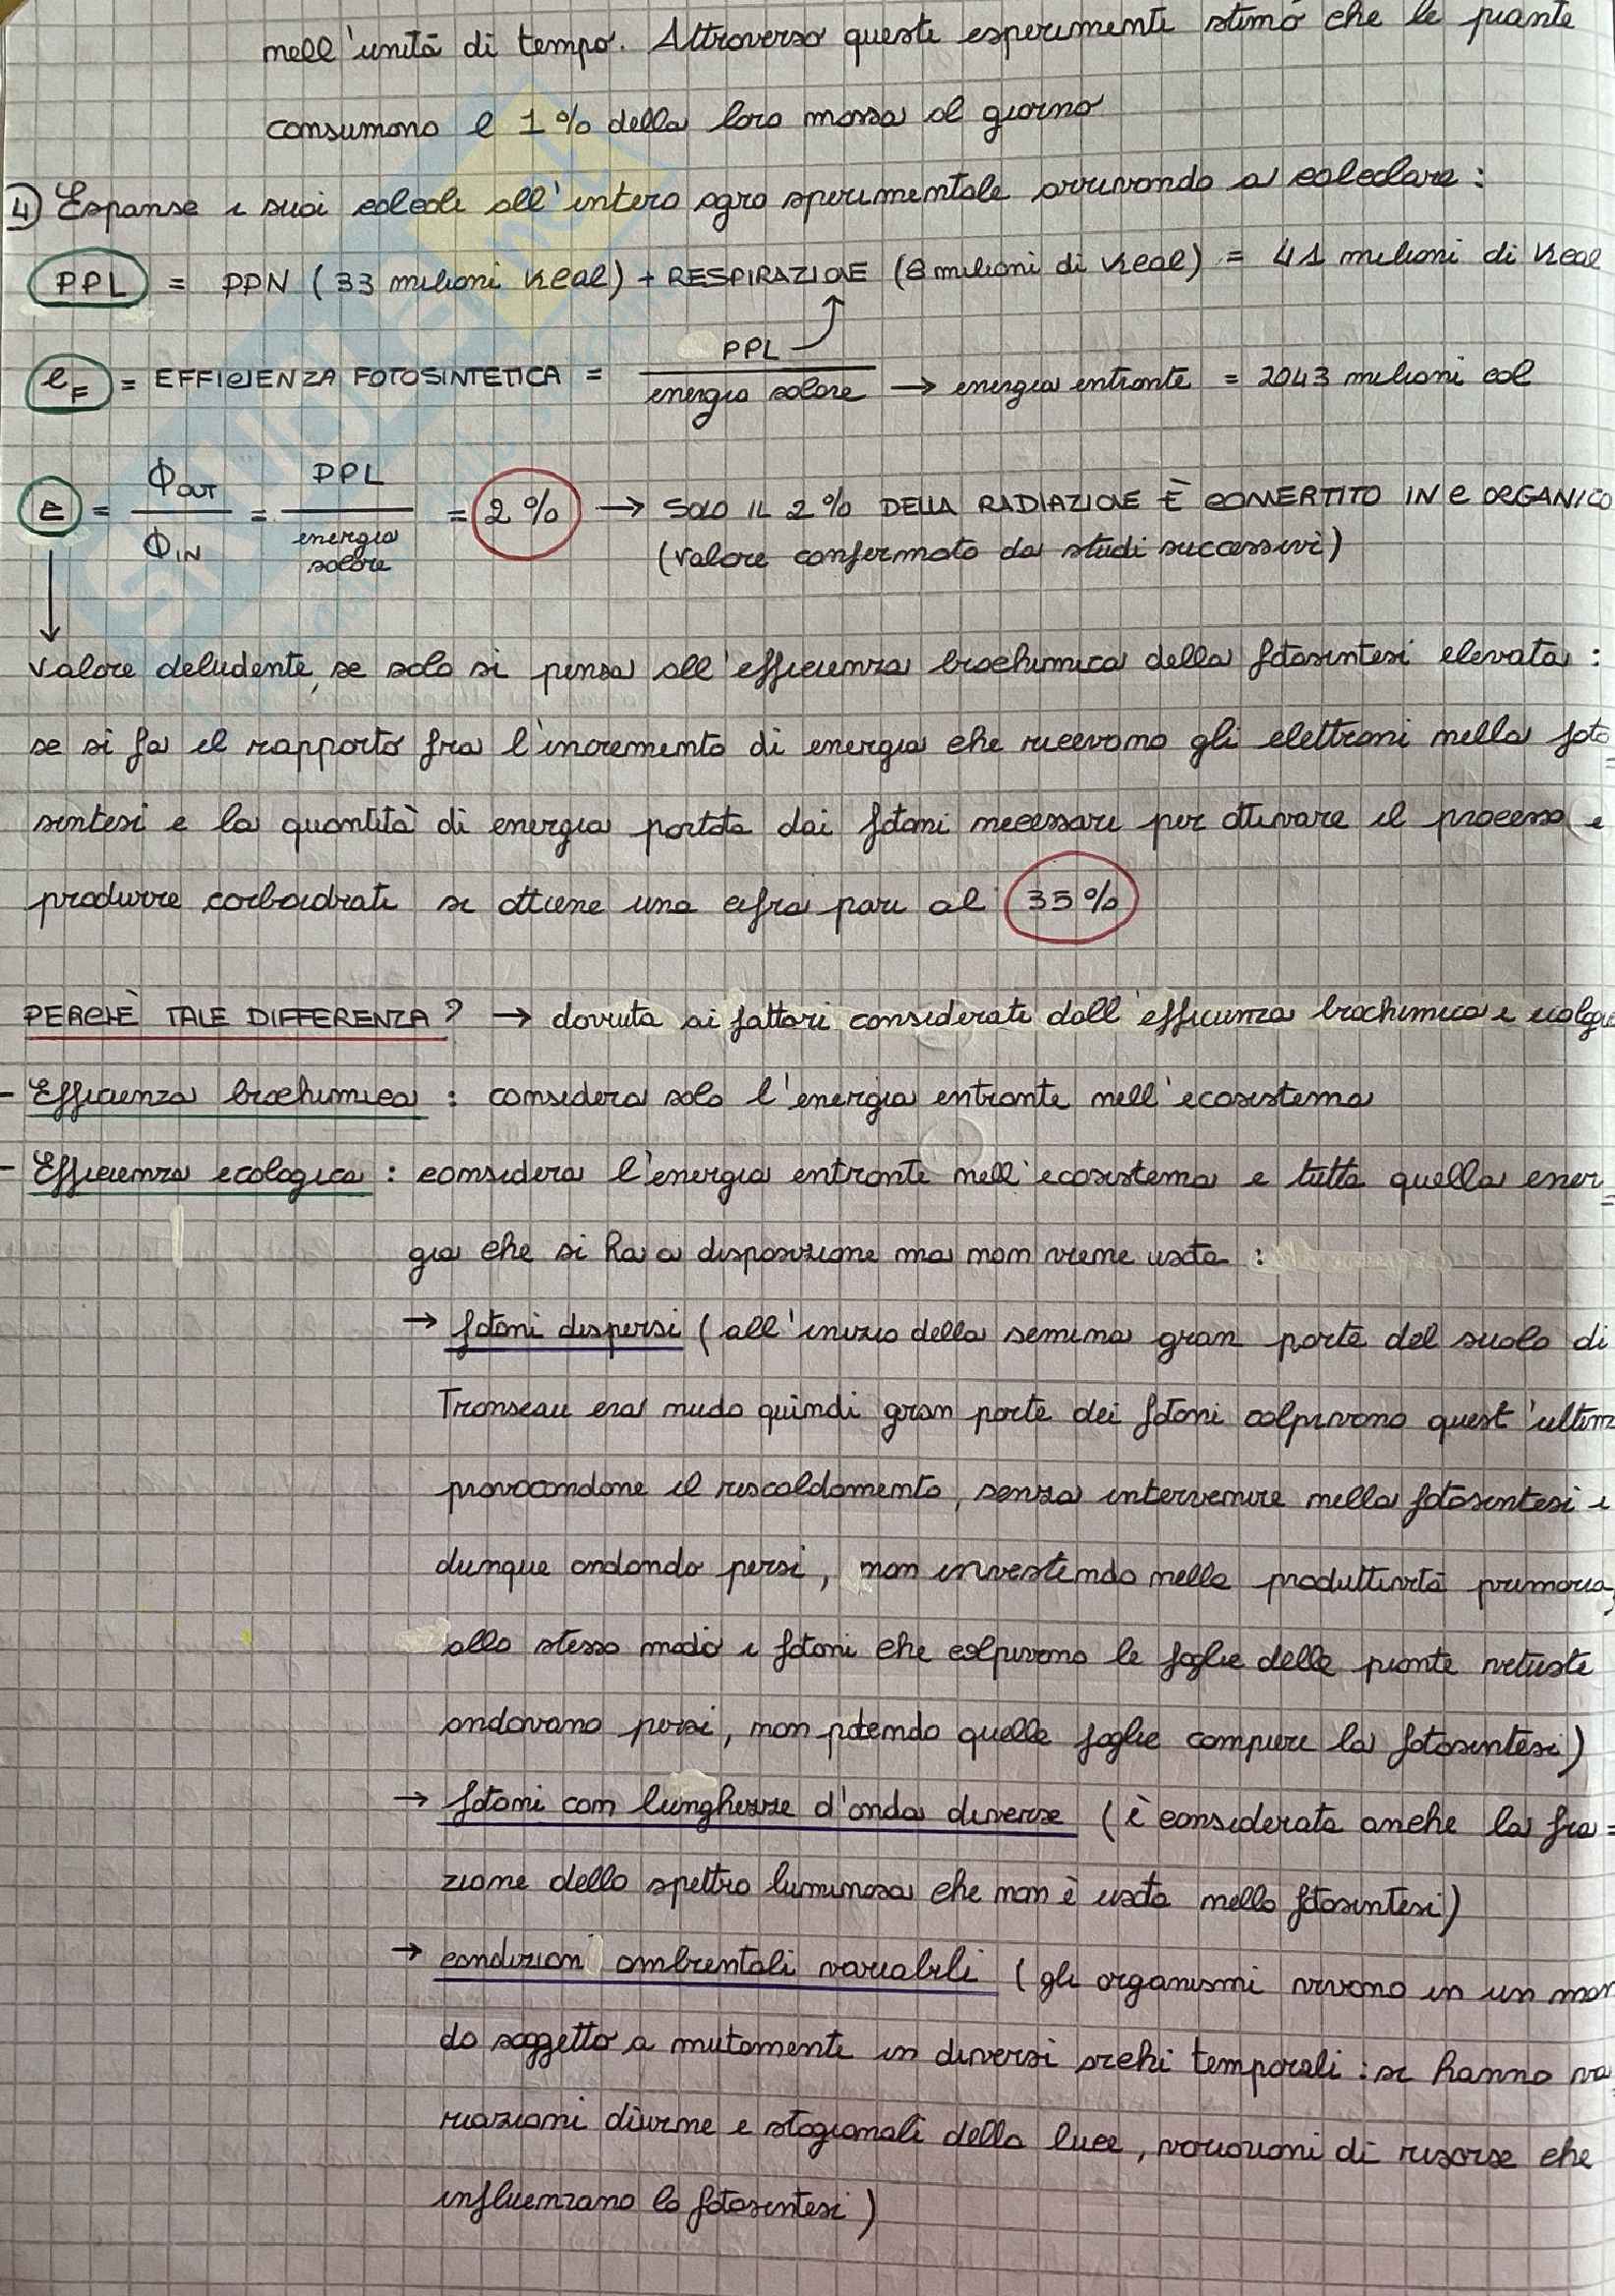 nell'unità di tempo. Attraverso questi esperimenti stimò che le piante
consumano l'1% della loro massa al giorno
4) Espanse i suoi calcoli all'intero agro sperimentale arrivando a calcolare:
PPL = PPN (33 milioni kcal) + RESPIRAZIONE (8 milioni di kcal) = 41 milioni di kcal
eF = EFFICIENZA FOTOSINTETICA = PPL / energia solare → energia entrante = 2043 milioni cal
E = ϕOUT / ϕIN = PPL / energia solare = 2% → SOLO IL 2% DELLA RADIAZIONE È CONVERTITO IN C ORGANICO
(valore confermato da studi successivi)
valore deludente, se solo si pensa all'efficienza biochimica della fotosintesi elevata:
se si fa il rapporto fra l'incremento di energia che ricevono gli elettroni nella foto=
sintesi e la quantità di energia portata dai fotoni necessari per attivare il processo e
produrre carboidrati si ottiene una cifra pari al 35%
PERCHÈ TALE DIFFERENZA? → dovuta ai fattori considerati dall'efficienza biochimica e ecologica
- Efficienza biochimica: considera solo l'energia entrante nell'ecosistema
- Efficienza ecologica: considera l'energia entrante nell'ecosistema e tutta quella ener=
gia che si ha a disposizione ma non viene usata:
→ fotoni dispersi (all'inizio della semina gran parte del suolo di
Transeau era nudo quindi gran parte dei fotoni colpivano quest'ultim
provocandone il riscaldamento, senza intervenire nella fotosintesi e
dunque andando persi, non investendo nella produttività primaria,
allo stesso modo i fotoni che colpivano le foglie delle piante vetuste
andavano persi, non potendo quelle foglie compiere la fotosintesi)
→ fotoni con lunghezze d'onda diverse (è considerata anche la fra=
zione dello spettro luminosa che non è usata nella fotosintesi)
→ condizioni ambientali variabili (gli organismi vivono in un mon
do soggetto a mutamenti in diversi archi temporali: si hanno va
riazioni diurne e stagionali della luce, variazioni di risorse che
influenzano la fotosintesi)